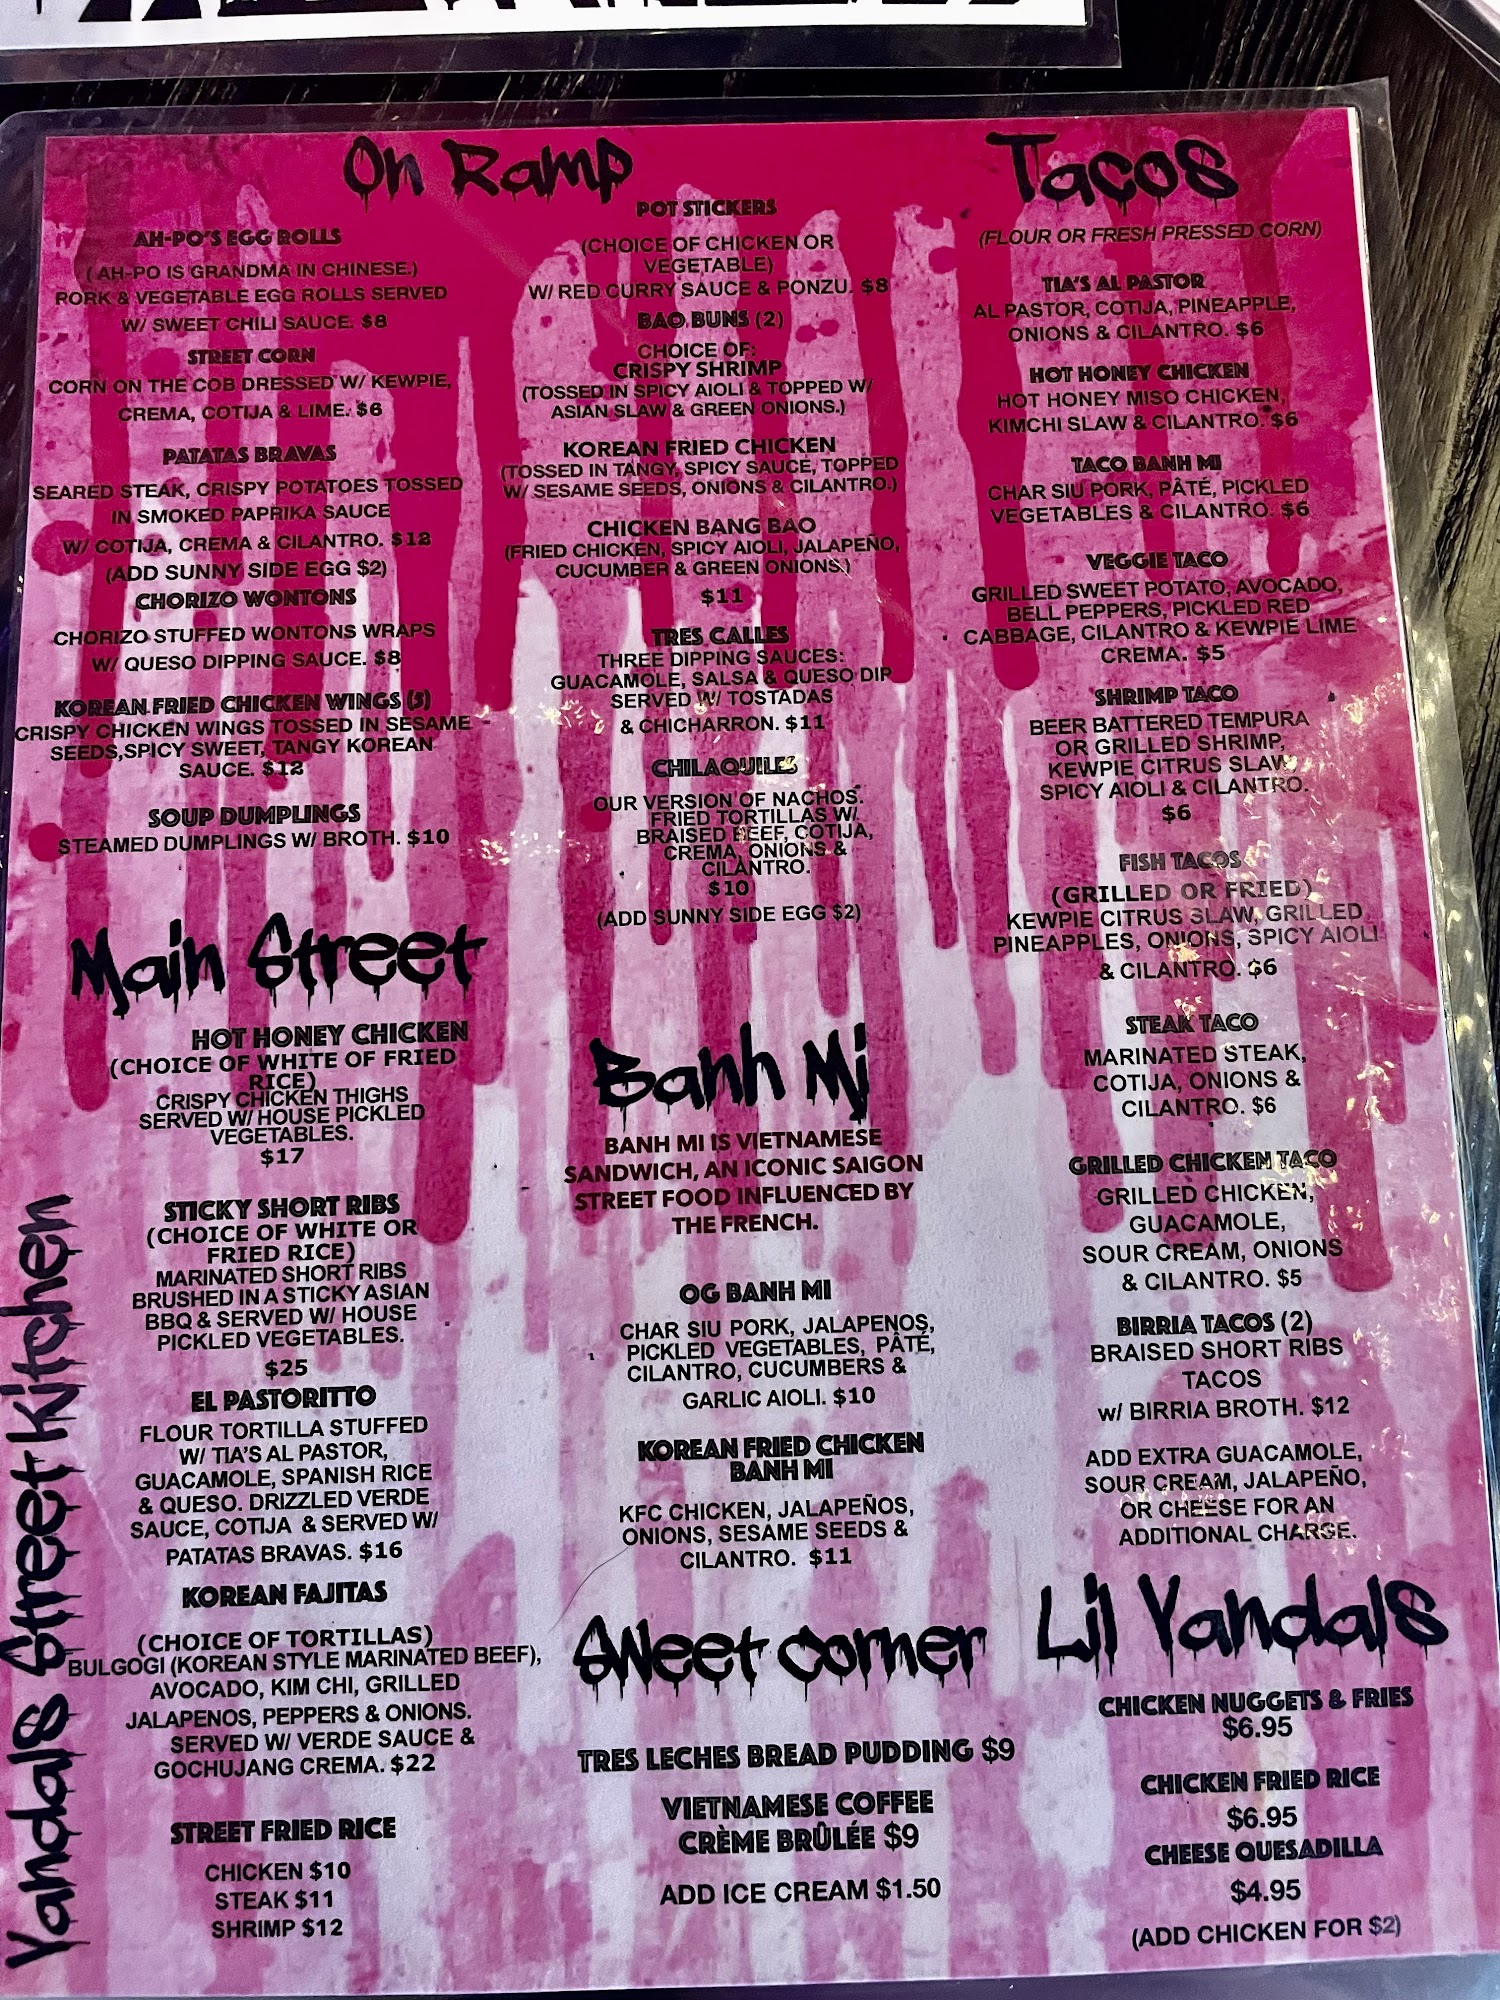 On Ramp
AH-PO'S EGG ROLLS
( AH-PO IS GRANDMA IN CHINESE.)
PORK & VEGETABLE EGG ROLLS SERVED
W/ SWEET CHILI SAUCE. $8
STREET CORN
CORN ON THE COB DRESSED W/ KEWPIE,
CREMA, COTIJA & LIME. $6
PATATAS BRAVAS
SEARED STEAK, CRISPY POTATOES TOSSED
IN SMOKED PAPRIKA SAUCE
W/ COTIJA, CREMA & CILANTRO. $12
(ADD SUNNY SIDE EGG $2)
CHORIZO WONTONS
CHORIZO STUFFED WONTONS WRAPS
W/ QUESO DIPPING SAUCE. $8
KOREAN FRIED CHICKEN WINGS (5)
CRISPY CHICKEN WINGS TOSSED IN SESAME
SEEDS,SPICY SWEET, TANGY KOREAN
SAUCE. $12
SOUP DUMPLINGS
STEAMED DUMPLINGS W/ BROTH. $10
POT STICKERS
(CHOICE OF CHICKEN OR
VEGETABLE)
W/ RED CURRY SAUCE & PONZU. $8
BAO BUNS (2)
CHOICE OF:
CRISPY SHRIMP
(TOSSED IN SPICY AIOLI & TOPPED W/
ASIAN SLAW & GREEN ONIONS.)
KOREAN FRIED CHICKEN
(TOSSED IN TANGY, SPICY SAUCE, TOPPED
W/ SESAME SEEDS, ONIONS & CILANTRO.)
CHICKEN BANG BAO
(FRIED CHICKEN, SPICY AIOLI, JALAPEÑO,
CUCUMBER & GREEN ONIONS.)
$11
TRES CALLES
THREE DIPPING SAUCES:
GUACAMOLE, SALSA & QUESO DIP
SERVED W/ TOSTADAS
& CHICHARRON. $11
CHILAQUILES
OUR VERSION OF NACHOS.
FRIED TORTILLAS W/
BRAISED BEEF, COTIJA,
CREMA, ONIONS &
CILANTRO.
$10
(ADD SUNNY SIDE EGG $2)
Tacos
(FLOUR OR FRESH PRESSED CORN)
TIA'S AL PASTOR
AL PASTOR, COTIJA, PINEAPPLE,
ONIONS & CILANTRO. $6
HOT HONEY CHICKEN
HOT HONEY MISO CHICKEN,
KIMCHI SLAW & CILANTRO. $6
TACO BANH MI
CHAR SIU PORK, PÂTÉ, PICKLED
VEGETABLES & CILANTRO. $6
VEGGIE TACO
GRILLED SWEET POTATO, AVOCADO,
BELL PEPPERS, PICKLED RED
CABBAGE, CILANTRO & KEWPIE LIME
CREMA. $5
SHRIMP TACO
BEER BATTERED TEMPURA
OR GRILLED SHRIMP,
KEWPIE CITRUS SLAW,
SPICY AIOLI & CILANTRO.
$6
FISH TACOS
(GRILLED OR FRIED)
KEWPIE CITRUS SLAW, GRILLED
PINEAPPLES, ONIONS, SPICY AIOLI
& CILANTRO. $6
STEAK TACO
MARINATED STEAK,
COTIJA, ONIONS &
CILANTRO. $6
GRILLED CHICKEN TACO
GRILLED CHICKEN,
GUACAMOLE,
SOUR CREAM, ONIONS
& CILANTRO. $5
BIRRIA TACOS (2)
BRAISED SHORT RIBS
TACOS
W/ BIRRIA BROTH. $12
ADD EXTRA GUACAMOLE,
SOUR CREAM, JALAPEÑO,
OR CHEESE FOR AN
ADDITIONAL CHARGE.
Main Street
HOT HONEY CHICKEN
(CHOICE OF WHITE OF FRIED
RICE)
CRISPY CHICKEN THIGHS
SERVED W/ HOUSE PICKLED
VEGETABLES.
$17
STICKY SHORT RIBS
(CHOICE OF WHITE OR
FRIED RICE)
MARINATED SHORT RIBS
BRUSHED IN A STICKY ASIAN
BBQ & SERVED W/ HOUSE
PICKLED VEGETABLES.
$25
EL PASTORITTO
FLOUR TORTILLA STUFFED
W/ TIA'S AL PASTOR,
GUACAMOLE, SPANISH RICE
& QUESO. DRIZZLED VERDE
SAUCE, COTIJA & SERVED W/
PATATAS BRAVAS. $16
KOREAN FAJITAS
(CHOICE OF TORTILLAS)
BULGOGI (KOREAN STYLE MARINATED BEEF),
AVOCADO, KIM CHI, GRILLED
JALAPENOS, PEPPERS & ONIONS.
SERVED W/ VERDE SAUCE &
GOCHUJANG CREMA. $22
STREET FRIED RICE
CHICKEN $10
STEAK $11
SHRIMP $12
Banh Mi
BANH MI IS VIETNAMESE
SANDWICH, AN ICONIC SAIGON
STREET FOOD INFLUENCED BY
THE FRENCH.
OG BANH MI
CHAR SIU PORK, JALAPENOS,
PICKLED VEGETABLES, PÂTÉ,
CILANTRO, CUCUMBERS &
GARLIC AIOLI. $10
KOREAN FRIED CHICKEN
BANH MI
KFC CHICKEN, JALAPEÑOS,
ONIONS, SESAME SEEDS &
CILANTRO. $11
Sweet Corner
TRES LECHES BREAD PUDDING $9
VIETNAMESE COFFEE
CRÈME BRÛLÉE $9
ADD ICE CREAM $1.50
Lil Vandals
CHICKEN NUGGETS & FRIES
$6.95
CHICKEN FRIED RICE
$6.95
CHEESE QUESADILLA
$4.95
(ADD CHICKEN FOR $2)
Vandals Street Kitchen